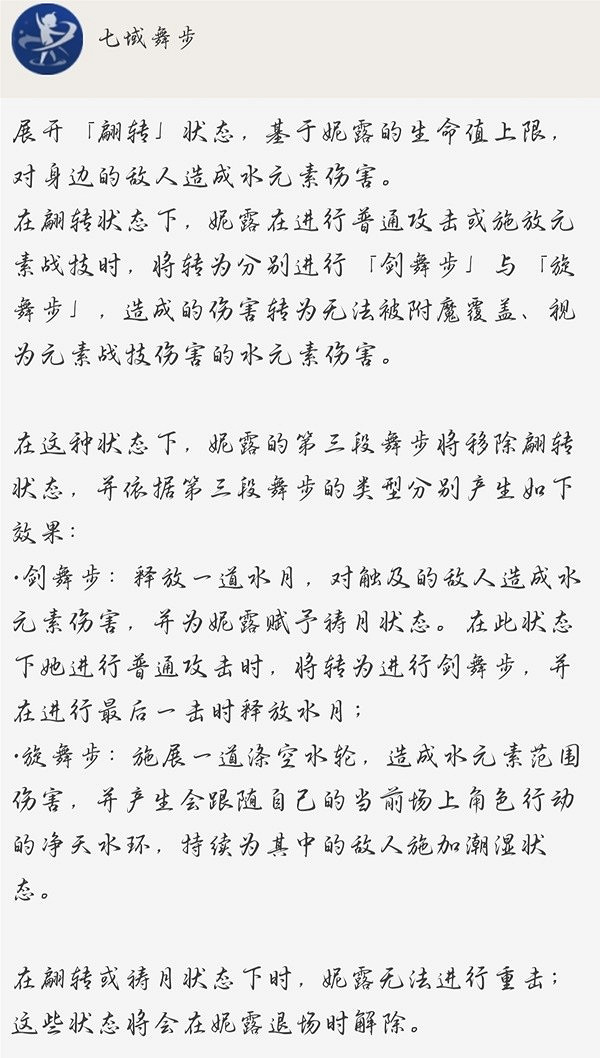 七域舞步
展开「翩转」状态，基于妮露的生命值上限，
对身边的敌人造成水元素伤害。
在翩转状态下，妮露在进行普通攻击或施放元
素战技时，将转为分别进行「剑舞步」与「旋
舞步」，造成的伤害转为无法被附魔覆盖、视
为元素战技伤害的水元素伤害。
在这种状态下，妮露的第三段舞步将移除翩转
状态，并依据第三段舞步的类型分别产生如下
效果：
·剑舞步：释放一道水月，对触及的敌人造成水
元素伤害，并为妮露赋予祷月状态。在此状态
下她进行普通攻击时，将转为进行剑舞步，并
在进行最后一击时释放水月；
·旋舞步：施展一道涤空水轮，造成水元素范围
伤害，并产生会跟随自己的当前场上角色行动
的净天水环，持续为其中的敌人施加潮湿状
态。
在翩转或祷月状态下时，妮露无法进行重击；
这些状态将会在妮露退场时解除。